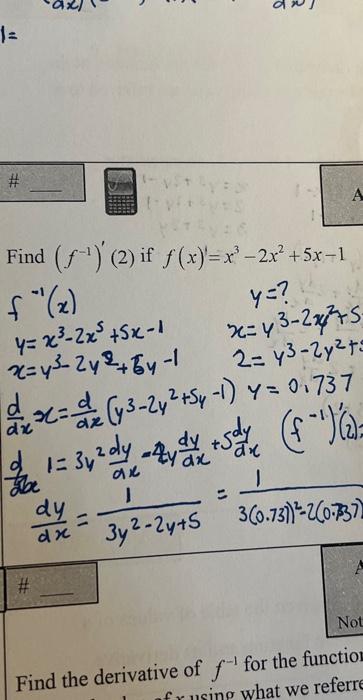 1=
#
A
Find (f⁻¹)′(2) if f(x) = x³ − 2x² + 5x − 1
f⁻¹(x)
y=?
y = x³-2x⁵+5x-1
x = y³-2y²+5
x = y³-2y²+5y-1
2 = y³-2y²+5
d/dx x = d/dx (y³-2y²+5y-1)
y = 0.737
d/dx 1 = 3y² dy/dx - 2y dy/dx + 5 dy/dx
(f⁻¹)′(2)=
dy/dx = 1/(3y²-2y+5) = 1/(3(0.73))²-2(0.737)
#
A
Not
Find the derivative of f⁻¹ for the function
of x using what we referre